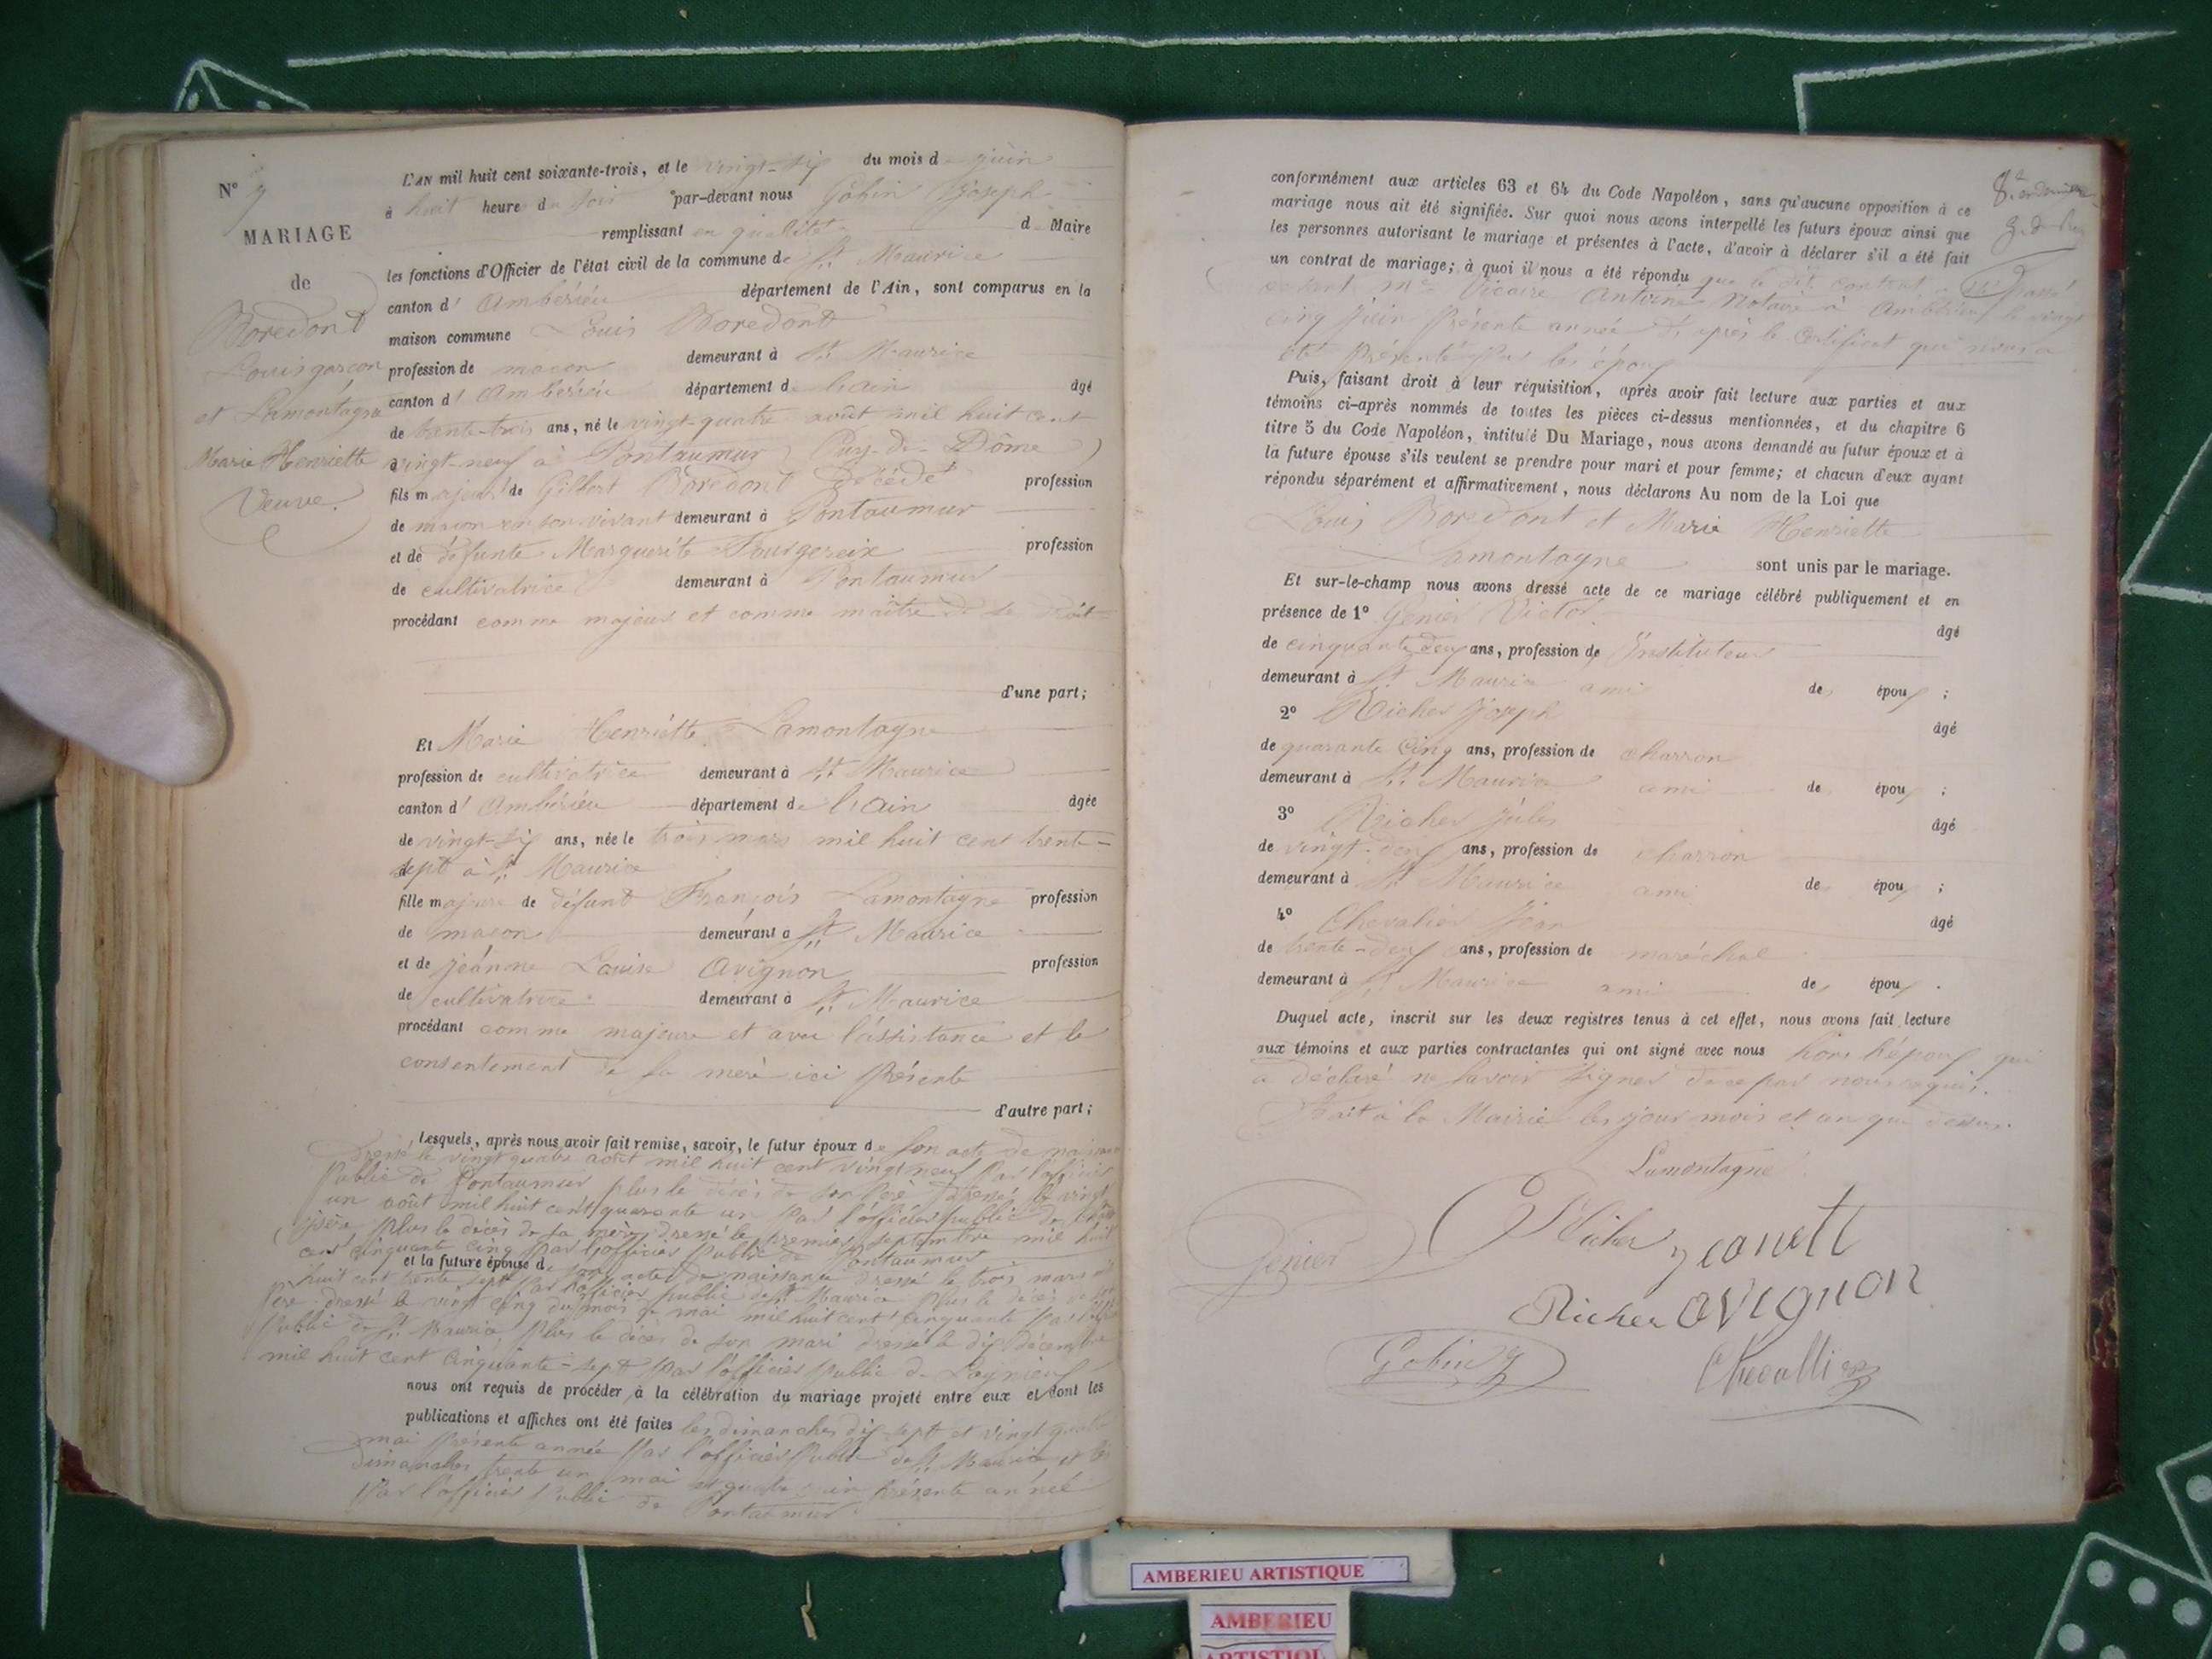 N° 7
MARIAGE
de
Boredont
Louis garçon
et Lamontagne
Marie Henriette
Veuve.
L'AN mil huit cent soixante-trois, et le vingt-six du mois de juin
à huit heures du soir par-devant nous Gobin Joseph
remplissant en qualité de Maire
les fonctions d'Officier de l'état civil de la commune de St Maurice
canton d' Ambérieu département de l'Ain, sont comparus en la
maison commune Louis Boredont
profession de maçon demeurant à St Maurice
canton d' Ambérieu département de l'ain âgé
de trente-trois ans, né le vingt-quatre août mil huit cent
vingt-neuf à Pontaumur (Puy-de-Dôme)
fils majeur de Gilbert Boredont décédé profession
de maçon en son vivant demeurant à Pontaumur
et de défunte Marguerite profession
de cultivatrice demeurant à Pontaumur
procédant comme majeur et comme maître de se droit
d'une part;
Et Marie Henriette Lamontagne
profession de cultivatrice demeurant à St Maurice
canton d' Ambérieu département de l'Ain âgée
de vingt-six ans, née le trois mars mil huit cent trente-
sept à St Maurice
fille majeure de défunt François Lamontagne profession
de maçon demeurant à St Maurice
et de jeanne Louise Avignon profession
de cultivatrice demeurant à St Maurice
procédant comme majeure et avec l'assistance et le
consentement de sa mère ici présente
d'autre part;
Lesquels, après nous avoir fait remise, savoir, le futur époux de son acte de naissance
dressé le vingt quatre août mil huit cent vingt neuf par l'officier
public de Pontaumur plus le décès de son père dressé le vingt
un août mil huit cent quarante un par l'officier public de
plus le décès de sa mère dressé le premier septembre mil huit
cent cinquante cinq par l'officier public de Pontaumur
et la future épouse de son acte de naissance dressé le trois mars mil
huit cent trente sept par l'officier public de St Maurice plus le décès de son
père dressé le vingt cinq du mois de mai mil huit cent cinquante par l'officier
public de St Maurice, plus le décès de son mari dressé le dix décembre
mil huit cent cinquante-sept par l'officier public de Lagnieu
nous ont requis de procéder à la célébration du mariage projeté entre eux et dont les
publications et affiches ont été faites les dimanches dix sept et vingt quatre
mai présente année par l'officier public de St Maurice et les
dimanches trente un mai et quatre juin présente année
par l'officier public de Pontaumur
conformément aux articles 63 et 64 du Code Napoléon, sans qu'aucune opposition à ce
mariage nous ait été signifiée. Sur quoi nous avons interpellé les futurs époux ainsi que
les personnes autorisant le mariage et présentes à l'acte, d'avoir à déclarer s'il a été fait
un contrat de mariage; à quoi il nous a été répondu que le dit contrat passé
devant Me Vicaire Antoine Notaire à Ambérieu le vingt
cinq juin présente année d'après le certificat qui nous a
été présenté par les époux
Puis, faisant droit à leur réquisition, après avoir fait lecture aux parties et aux
témoins ci-après nommés de toutes les pièces ci-dessus mentionnées, et du chapitre 6
titre 5 du Code Napoléon, intitulé Du Mariage, nous avons demandé au futur époux et à
la future épouse s'ils veulent se prendre pour mari et pour femme; et chacun d'eux ayant
répondu séparément et affirmativement, nous déclarons Au nom de la Loi que
Louis Boredont et Marie Henriette
Lamontagne sont unis par le mariage.
Et sur-le-champ nous avons dressé acte de ce mariage célébré publiquement et en
présence de 1° Genier Victor âgé
de cinquante deux ans, profession de Instituteur
demeurant à St Maurice ami des époux ;
2° Richer Joseph âgé
de quarante cinq ans, profession de charron
demeurant à St Maurice ami des époux ;
3° Richer Jules âgé
de vingt-deux ans, profession de charron
demeurant à St Maurice ami des époux ;
4° Chevalier Jean âgé
de trente-deux ans, profession de maréchal
demeurant à St Maurice ami des époux .
Duquel acte, inscrit sur les deux registres tenus à cet effet, nous avons fait lecture
aux témoins et aux parties contractantes qui ont signé avec nous hors l'époux qui
a déclaré ne savoir signer de ce par nous requis.
Fait à la Mairie les jour mois et an que dessus.
Lamontagne
Genier
Richer
Richer avignon
Gobin J
Chevallier
AMBERIEU ARTISTIQUE
AMBERIEU
ARTISTIQUE